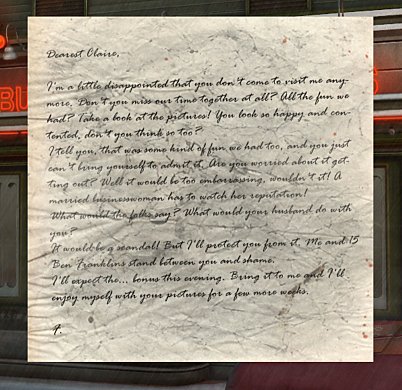 Dearest Claire,
I'm a little disappointed that you don't come to visit me any-
more. Don't you miss our time together at all? All the fun we
had? Take a book at the pictures! You look so happy and con-
tented, don't you think so too?
I tell you, that was some kind of fun we had too, and you just
can't bring yourself to admit it. Are you worried about it get-
ting out? Well it would be too embarrassing, wouldn't it! A
married businesswoman has to watch her reputation!
What would the folks say? What would your husband do with
you?
It would be a scandal! But I'll protect you from it. Me and 15
Ben Franklins stand between you and shame.
I'll expect the... bonus this evening. Bring it to me and I'll
enjoy myself with your pictures for a few more weeks.
BU